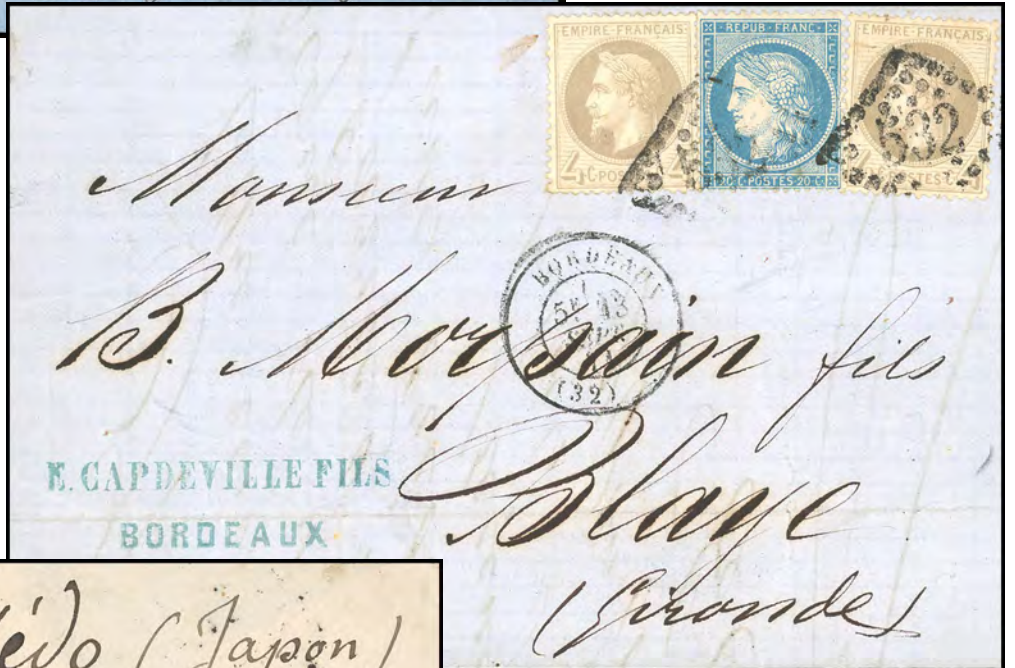 EMPIRE FRANÇAIS
4 C POSTES 4
REPUB · FRANC
20 C POSTES 20 C
EMPIRE FRANÇAIS
4 C POSTES C
532
Monsieur
BORDEAUX
5E 13
SEPT
(32)
B. Morpain fils
E. CAPDEVILLE FILS
BORDEAUX
Blaye
(Gironde)
(Japon)